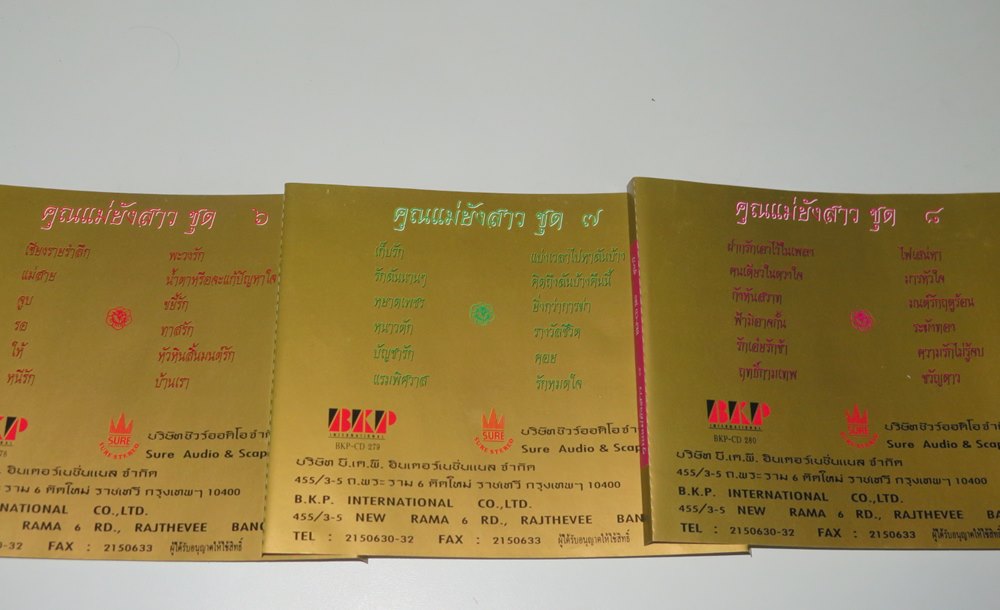 คุณแม่ยังสาว ชุด ๖
เชียงรายรำลึก
แม่สาย
จูบ
รอ
ให้
หนีรัก
พะวงรัก
น้ำตาหรือจะแก้ปัญหาใจ
ขยี้รัก
ทาสรัก
หัวหินสิ้นมนต์รัก
บ้านเรา
KP
78
SURE
SURE STEREO
บริษัทชัวร์ออดิโอจำกั
Sure Audio & Scap
. อินเตอร์เนชั่นแนล จำกัด
ราม 6 ตัดใหม่ ราชเทวี กรุงเทพฯ 10400
NATIONAL CO.,LTD.
RAMA 6 RD., RAJTHEVEE BANG
0-32 FAX : 2150633 ผู้ได้รับอนุญาตให้ใช้สิทธิ์
คุณแม่ยังสาว ชุด ๗
เก็บรัก
รักฉันนานๆ
หยาดเพชร
หนาวตัก
บัญชารัก
แรมพิศวาส
แบ่งเวลาไปหาฉันบ้าง
คิดถึงฉันบ้างคืนนี้
ยิ่งกว่าการฆ่า
รางวัลชีวิต
คอย
รักหมดใจ
BKP
INTERNATIONAL
BKP-CD 279
SURE
SURE STEREO
บริษัทชัวร์ออดิโอจำกั
Sure Audio & Scap
บริษัท บี.เค.พี. อินเตอร์เนชั่นแนล จำกัด
455/3-5 ถ.พระราม 6 ตัดใหม่ ราชเทวี กรุงเทพฯ 10400
B.K.P. INTERNATIONAL CO.,LTD.
455/3-5 NEW RAMA 6 RD., RAJTHEVEE BAN
TEL : 2150630-32 FAX : 2150633 ผู้ได้รับอนุญาตให้ใช้สิทธิ์
คุณแม่ยังสาว ชุด ๘
ฝากรักเอาไว้ในเพลง
คนเดียวในดวงใจ
กังหันสวาท
ฟ้ามิอาจกั้น
รักเอ๋ยรักข้า
ฤทธิ์กามเทพ
ไฟเสน่หา
มารหัวใจ
มนต์รักฤดูร้อน
ระฆังทอง
ความรักไม่รู้จบ
ขวัญดาว
BKP
INTERNATIONAL
BKP-CD 280
SURE
SURE STEREO
บริษัทชัวร์ออดิโอจำ
Sure Audio & Sca
บริษัท บี.เค.พี. อินเตอร์เนชั่นแนล จำกัด
455/3-5 ถ.พระราม 6 ตัดใหม่ ราชเทวี กรุงเทพฯ 10400
B.K.P. INTERNATIONAL CO.,LTD.
455/3-5 NEW RAMA 6 RD., RAJTHEVEE BAN
TEL : 2150630-32 FAX : 2150633 ผู้ได้รับอนุญาตให้ใช้สิทธิ์